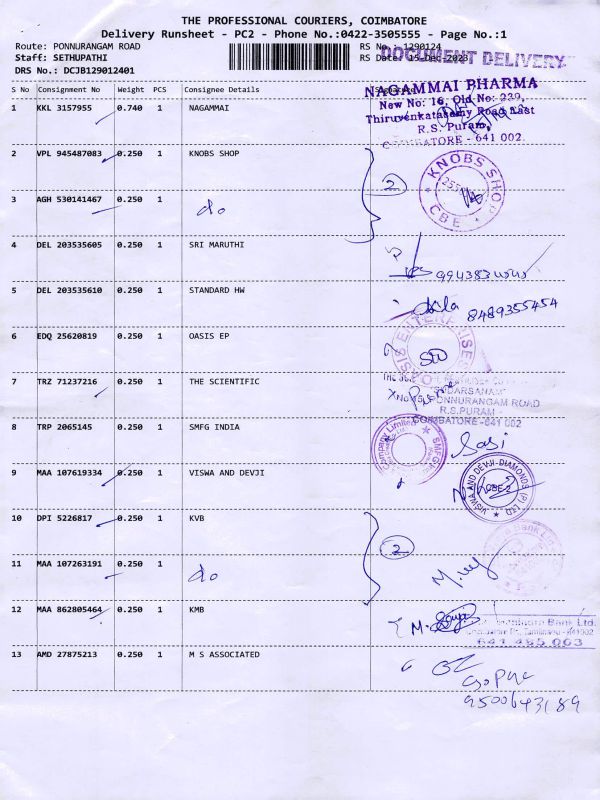 THE PROFESSIONAL COURIERS, COIMBATORE
Delivery Runsheet - PC2 - Phone No.:0422-3505555 - Page No.:1
Route: PONNURANGAM ROAD
Staff: SETHUPATHI
DRS No.: DCJB129012401
RS No.: 1290124
RS Date: 15-Dec-2023
DOCUMENT DELIVERY
S No Consignment No Weight PCS Consignee Details
1 KKL 3157955 0.740 1 NAGAMMAI
NAGAMMAI PHARMA
New No: 16, Old No: 239,
Thiruvenkatasamy Road East
R.S. Puram,
COIMBATORE - 641 002.
2 VPL 945487083 0.250 1 KNOBS SHOP
2
KNOBS SHOP
CBE
3 AGH 530141467 0.250 1 do
4 DEL 203535605 0.250 1 SRI MARUTHI
5 DEL 203535610 0.250 1 STANDARD HW
8489355454
6 EDQ 25620819 0.250 1 OASIS EP
OASIS ENTERPRISES
7 TRZ 71237216 0.250 1 THE SCIENTIFIC
PONNURANGAM ROAD
R.S.PURAM -
COIMBATORE-641 002
8 TRP 2065145 0.250 1 SMFG INDIA
Company Limited
SMFG
Sasi
9 MAA 107619334 0.250 1 VISWA AND DEVJI
VISWA AND DEVJI-DIAMONDS (P) LTD
CBE-2
10 DPI 5226817 0.250 1 KVB
2
11 MAA 107263191 0.250 1 do
12 MAA 862805464 0.250 1 KMB
Bank Ltd.
13 AMD 27875213 0.250 1 M S ASSOCIATED
9500643189